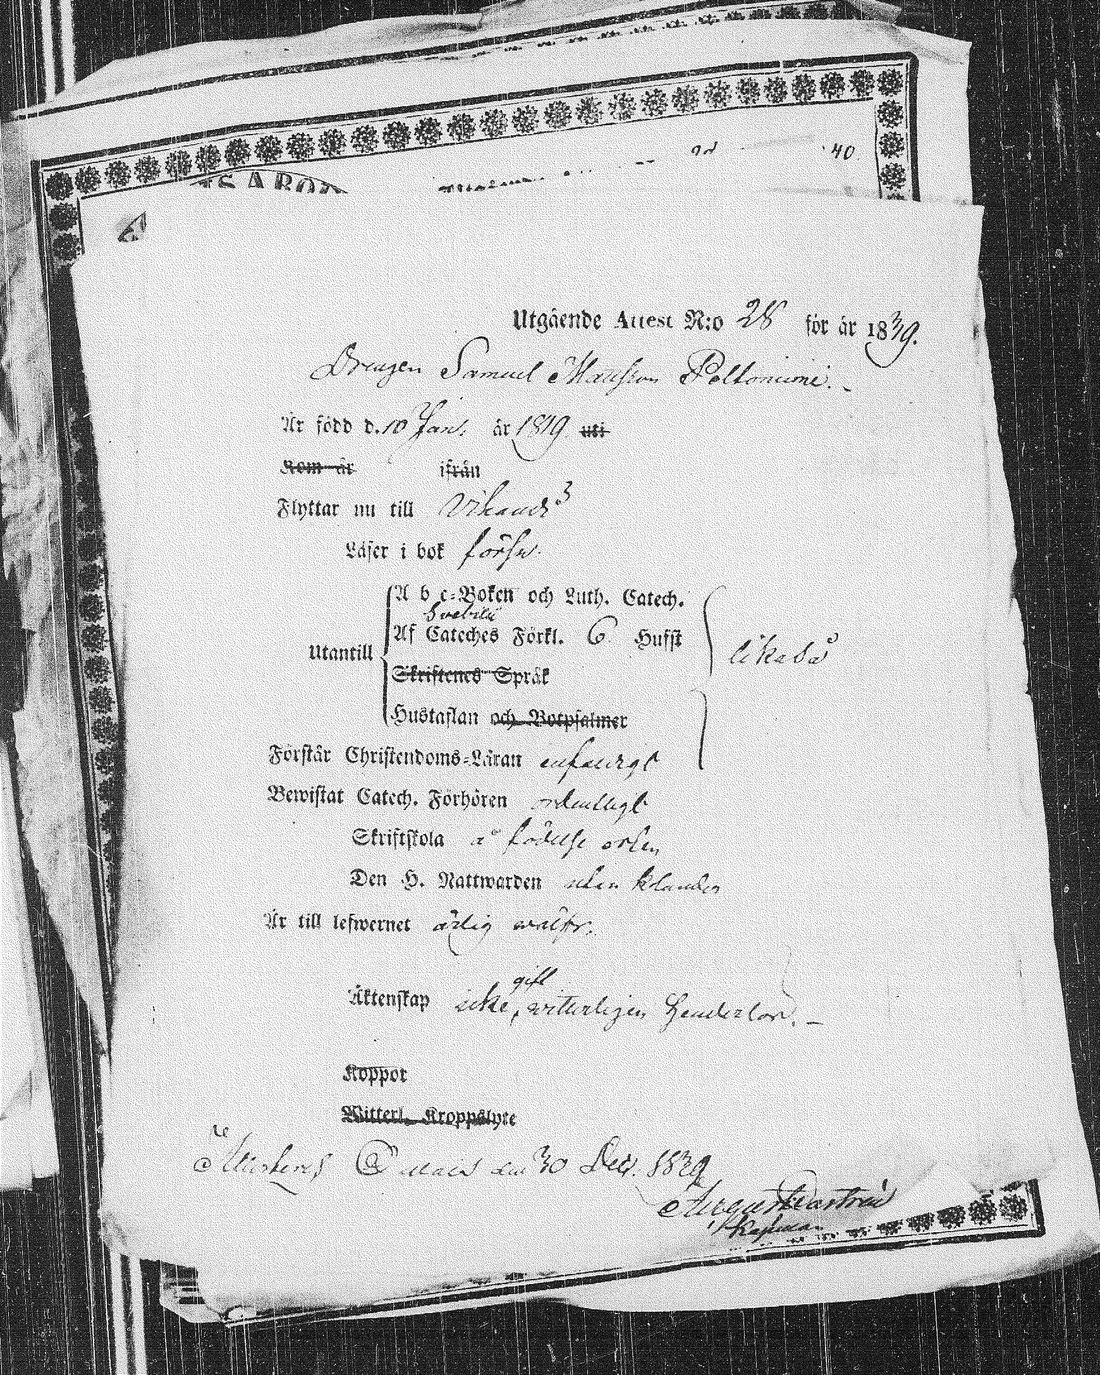 40
Utgående Attest N:o 28 för år 1839.
Drengen Samuel Mattsson Peltoniemi.
Är född d. 10 Jan. år 1819 uti
Kom år ifrån
Flyttar nu till
Läser i bok försv.
A b c-Boken och Luth. Catech.
Svebilii
Utantill Af Cateches Förkl. 6 Hufst likaså
Skriftenes Språk
Hustaflan och Botpsalmer
Förstår Christendoms-Läran enfaldigt
Bewistat Catech. Förhören ordentligt
Skriftskola å födelse orten
Den H. Nattwarden utan klander
Är till lefwernet ärlig wälfr.
gift
Äktenskap icke, witterligen hinderlös.
Koppor
Witterl. Kroppslyte
den 30 Dec. 1839
August
Kaplan